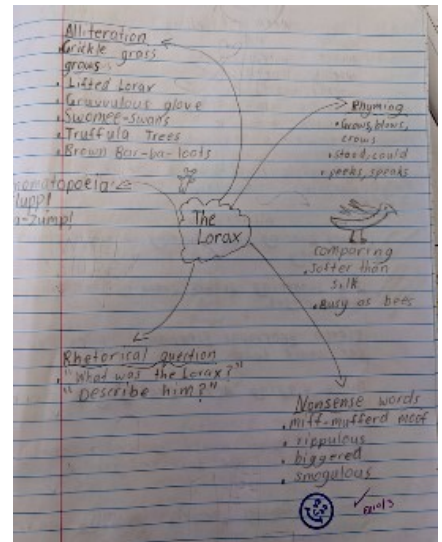 Alliteration
• Grickle grass
grows
• Lifted Lorax
• Gruvvulous glove
• Swomee-swans
• Truffula Trees
• Brown Bar-ba-loots
Rhyming
• Grows, blows,
crows
• stood, could
• peeks, speaks
The
Lorax
comparing
• Softer than
silk
• Busy as bees
Rhetorical question
"What was the Lorax?"
"Describe him?"
Nonsense words
• miff-mufferd moof
• rippulous
• biggered
• smogulous